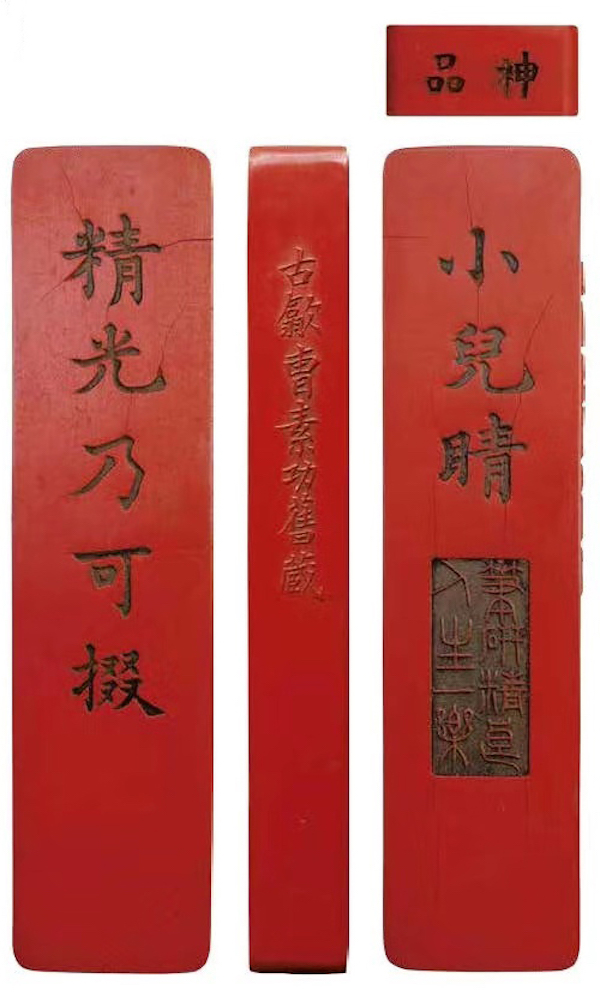 神品
小兒睛
筆研精良
人生一樂
古歙曹素功舊藏
精光乃可掇